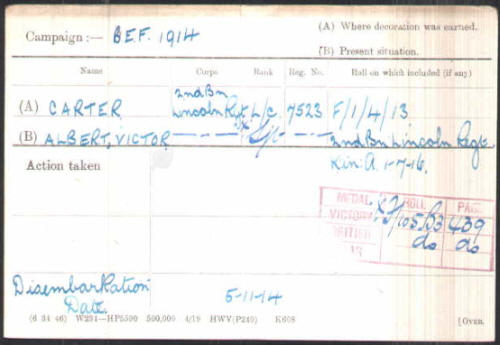 Campaign :— B.E.F. 1914
(A) Where decoration was earned.
(B) Present situation.
Name Corps Rank Reg. No. Roll on which included (if any)
2nd Bn
(A) CARTER Lincoln Rgt L/C. 7523 F/1/4/13
(B) ALBERT, VICTOR — " — Sjt — " — 2nd Bn Lincoln Regt
Action taken K in A. 1-7-16.
MEDAL ROLL PAGE
VICTORY /105 B3 439
BRITISH do do
WAR
Disembarkation
Date. 5-11-14
(6 34 46) W231—HP5590 500,000 4/19 HWV(P240) K608 [OVER.